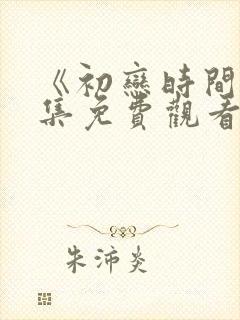 《初戀時間
集免費觀看
朱沛炎